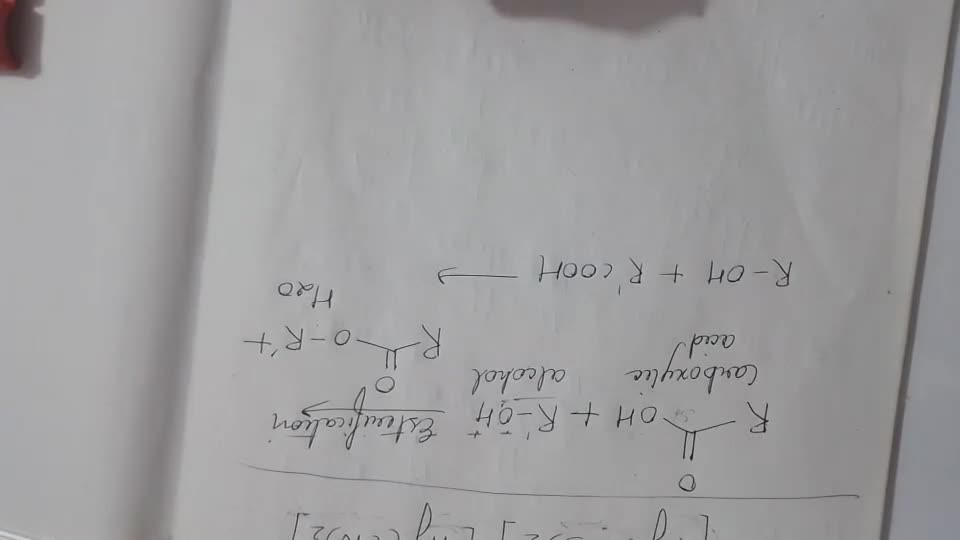 O
R OH + R'-OH Esterification
carboxylic acid alcohol
O
R O-R' +
H2O
R-OH + R'COOH →